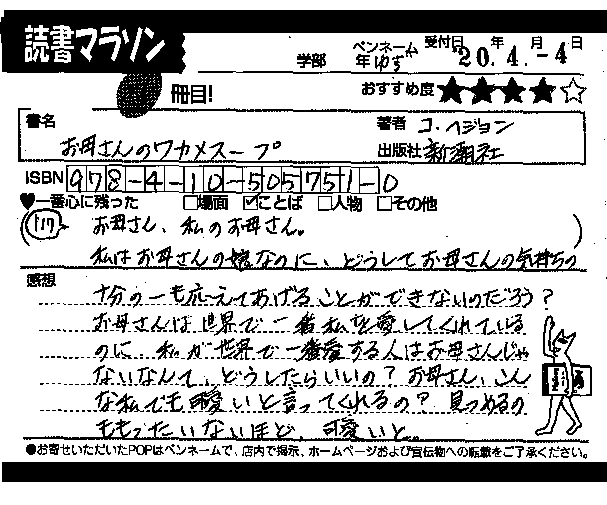 読書マラソン
学部 年 ペンネーム ゆず 受付日 20.年4.月-4日
冊目! おすすめ度 ★★★★☆
書名 著者 コ.ヘジョン
お母さんのワカメスープ 出版社 新潮社
ISBN 978-4-10-505751-0
♥一番心に残った □場面 ☑ことば □人物 □その他
(117 お母さん、私のお母さん。 )
私はお母さんの娘なのに、どうしてお母さんの気持ちの
感想
十分の一も応えてあげることができないのだろう?
お母さんは世界で一番私を愛してくれている
のに、私が世界で一番愛する人はお母さんじゃ
ないなんて、どうしたらいいの? お母さん、こん
な私でも可愛いと言ってくれるの? 見つめるの
ももったいないほど、可愛いと。
●お寄せいただいたPOPはペンネームで、店内で掲示、ホームページおよび宣伝物への転載をご了承ください。